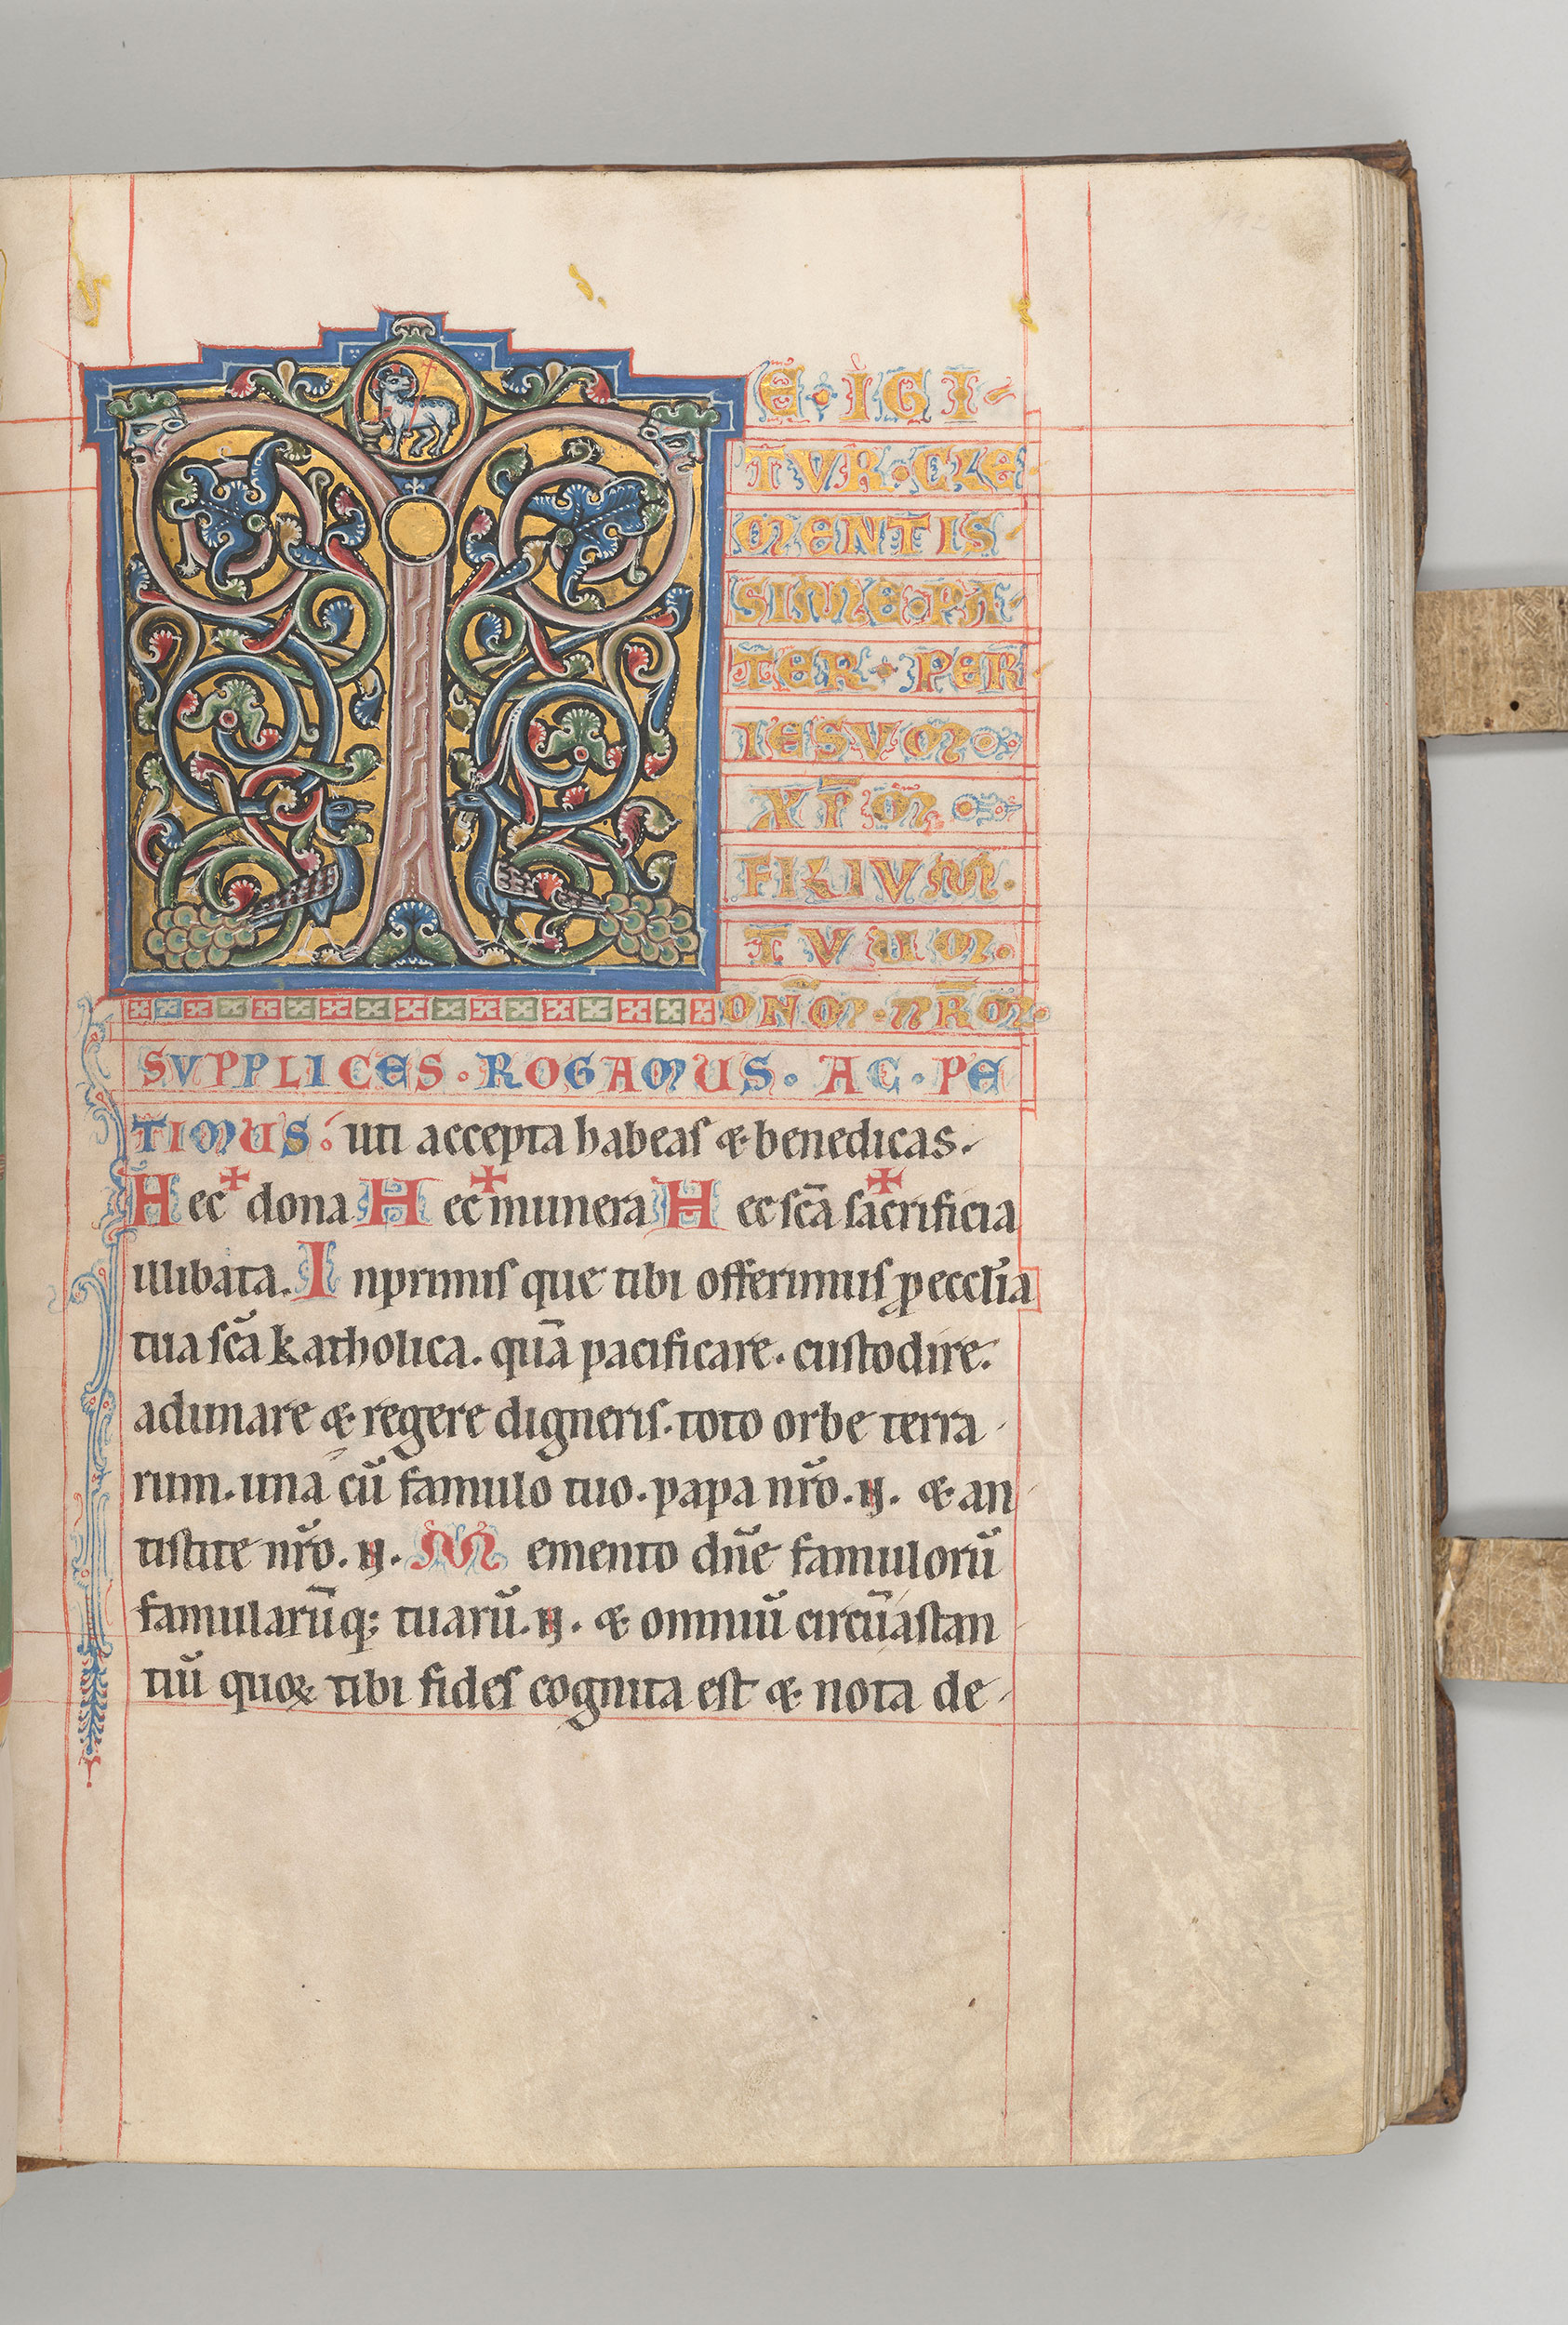 T E · IGI-
TVR · CLE
MENTIS
SIME · PA-
TER · PER
IESVM
XP̅M
FILIVM ·
TVUM ·
DN̅M · NR̅M ·
SVPPLICES · ROGAMUS · AC · PE
TIMUS: uti accepta habeas & benedicas.
Hec ✝ dona Hec ✝ munera Hec sc̅a sa✝crificia
illibata. Inprimis que tibi offerimus p̱ eccl̅ia
tua sc̅a katholica. qua̅ pacificare. custodire.
adunare & regere digneris. toto orbe terra
rum. una cu̅ famulo tuo. papa nr̅o. N. & an
tistite nr̅o. N. Memento dn̅e famuloru̅
famularu̅q; tuaru̅. N. & omniu̅ circu̅astan
tiu̅ quoꝝ tibi fides cognita est & nota de-